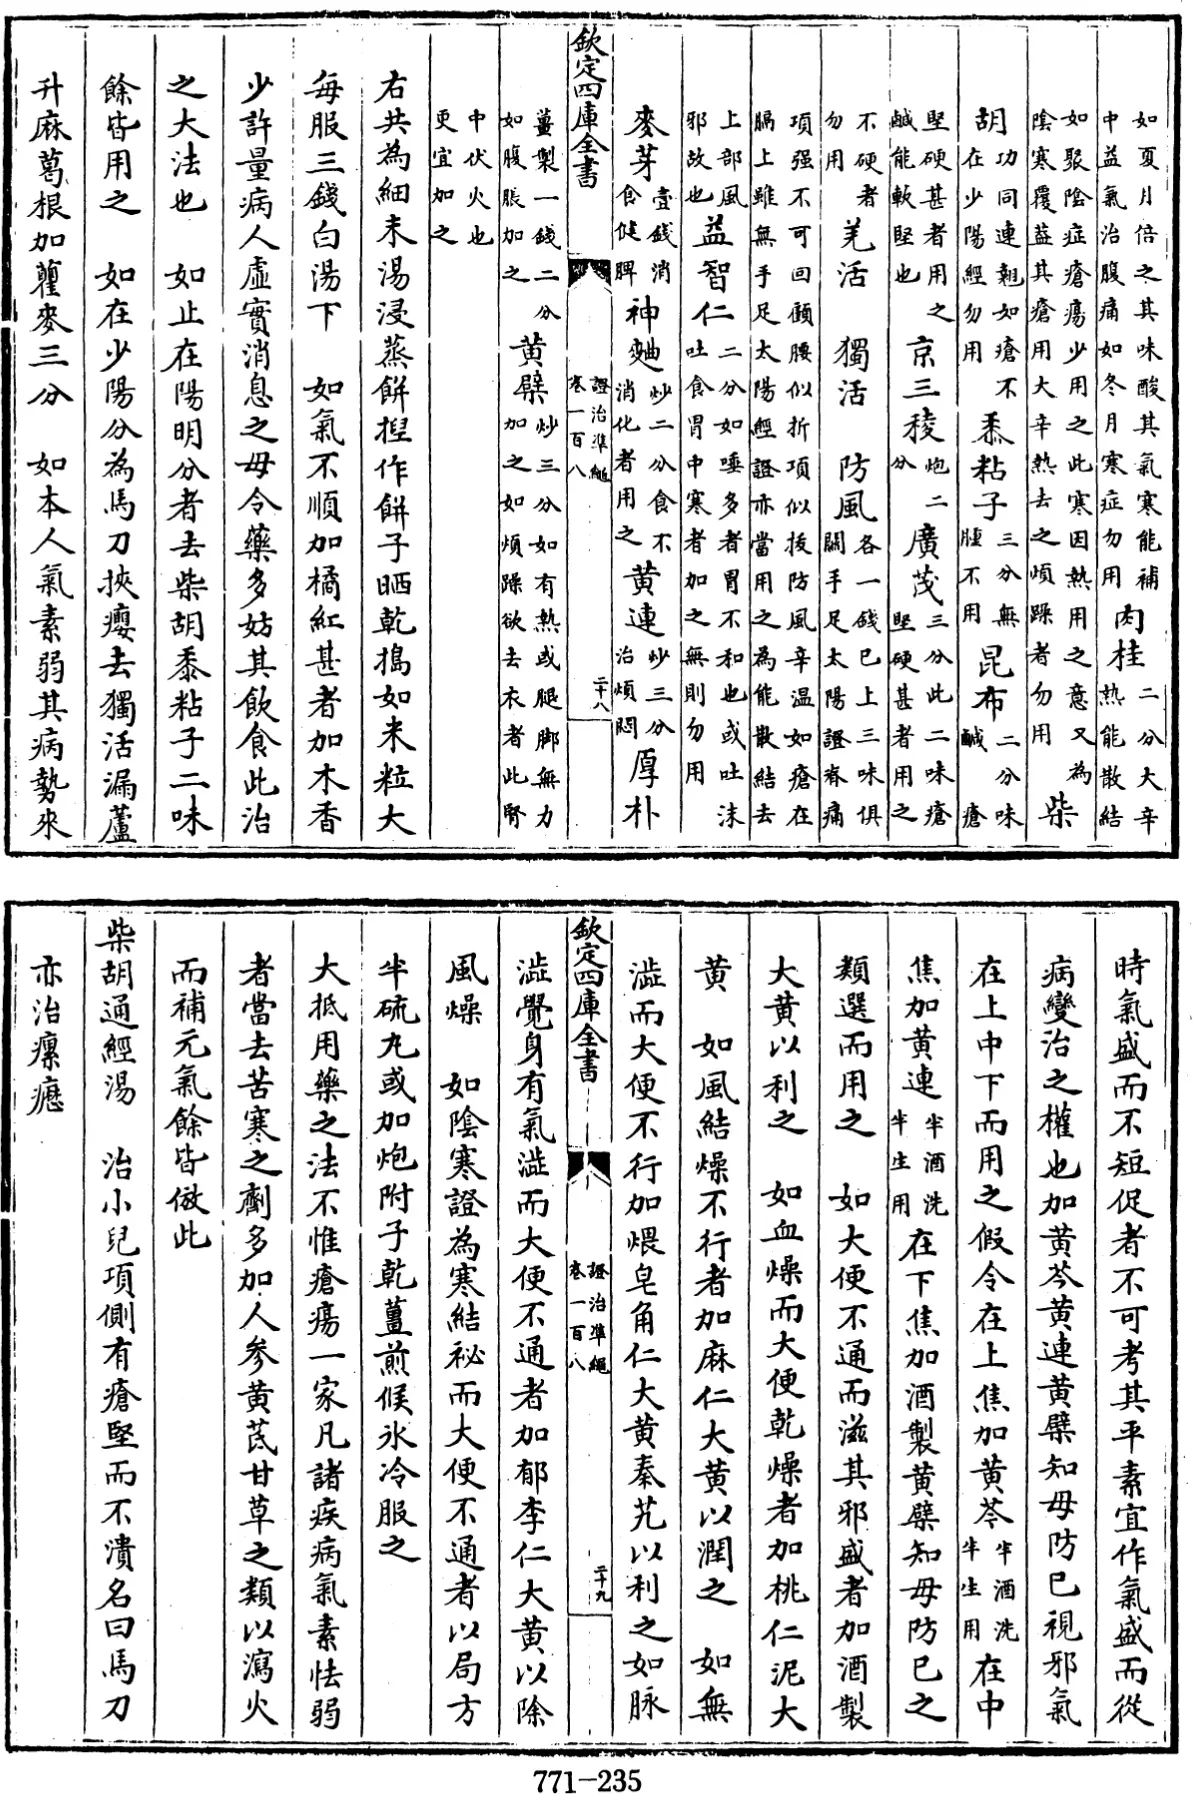 如夏月倍之其味酸其氣寒能補中益氣治腹痛如冬月寒症勿用 肉桂 二分大辛熱能散結
如聚陰症瘡瘍少用之此寒因熱用之意又為陰寒覆蓋其瘡用大辛熱去之煩躁者勿用 柴
胡 功同連翹如瘡不在少陽經勿用 黍粘子 三分無腫不用 昆布 二分味鹹 瘡
堅硬甚者用之鹹能軟堅也 京三稜 炮二分 廣茂 三分此二味瘡堅硬甚者用之
不硬者勿用 羌活 獨活 防風 各一錢已上三味俱關手足太陽證脊痛
項强不可回顧腰似折項似拔防風辛温如瘡在膈上雖無手足太陽經證亦當用之為能散結去
上部風邪故也 益智仁 二分如唾多者胃不和也或吐沫吐食胃中寒者加之無則勿用
麥芽 壹錢消食健脾 神麯 炒二分食不消化者用之 黄連 炒三分治煩悶 厚朴
欽定四庫全書 證治準繩 卷一百八 二十八
薑製一錢二分如腹脹加之 黄蘗 炒三分如有熱或腿脚無力加之如煩躁欲去衣者此腎
中伏火也更宜加之
右共為細末湯浸蒸餅揑作餅子晒乾搗如米粒大
每服三錢白湯下 如氣不順加橘紅甚者加木香
少許量病人虛實消息之毋令藥多妨其飲食此治
之大法也 如止在陽明分者去柴胡黍粘子二味
餘皆用之 如在少陽分為馬刀挾癭去獨活漏蘆
升麻葛根加瞿麥三分 如本人氣素弱其病勢來
時氣盛而不短促者不可考其平素宜作氣盛而從
病變治之權也加黄芩黄連黄蘗知母防已視邪氣
在上中下而用之假令在上焦加黄芩 半酒洗半生用 在中
焦加黄連 半酒洗半生用 在下焦加酒製黄蘗知母防已之
類選而用之 如大便不通而滋其邪盛者加酒製
大黄以利之 如血燥而大便乾燥者加桃仁泥大
黄 如風結燥不行者加麻仁大黄以潤之 如無
澁而大便不行加煨皂角仁大黄秦艽以利之如脉
欽定四庫全書 證治準繩 卷一百八 二十九
澁覺身有氣澁而大便不通者加郁李仁大黄以除
風燥 如陰寒證為寒結秘而大便不通者以局方
半硫丸或加炮附子乾薑煎候氷冷服之
大抵用藥之法不惟瘡瘍一家凡諸疾病氣素怯弱
者當去苦寒之劑多加人參黄芪甘草之類以瀉火
而補元氣餘皆倣此
柴胡通經湯 治小兒項側有瘡堅而不潰名曰馬刀
亦治瘰癧
771-235